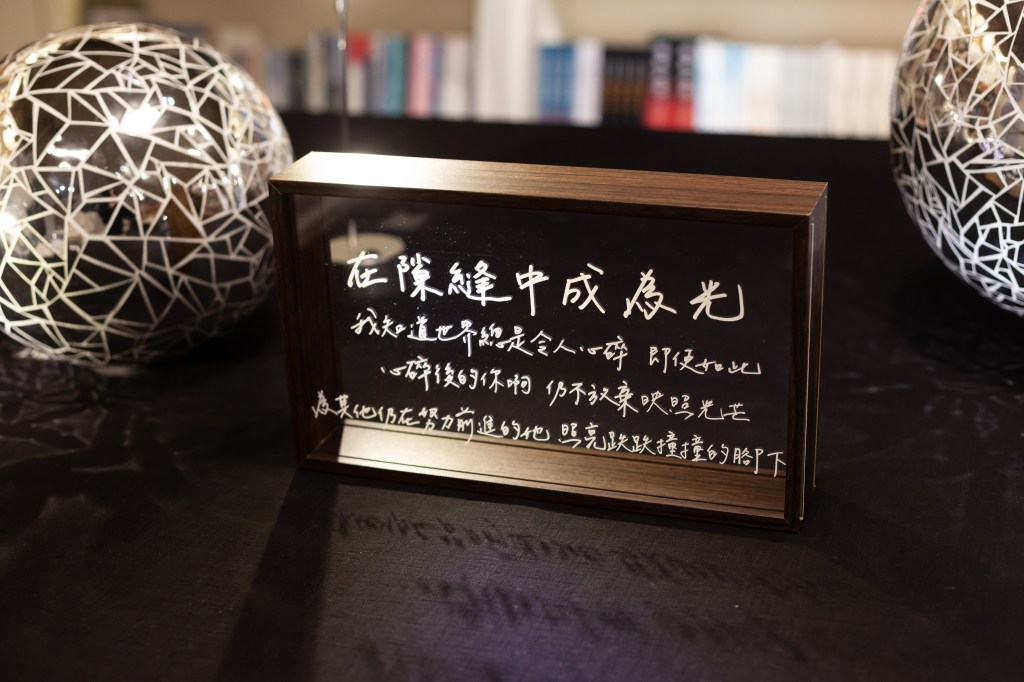 在隙縫中成為光
我知道世界總是令人心碎 即便如此
心碎後的你啊 仍不放棄映照光芒
為其他仍在努力前進的他 照亮跌跌撞撞的腳下